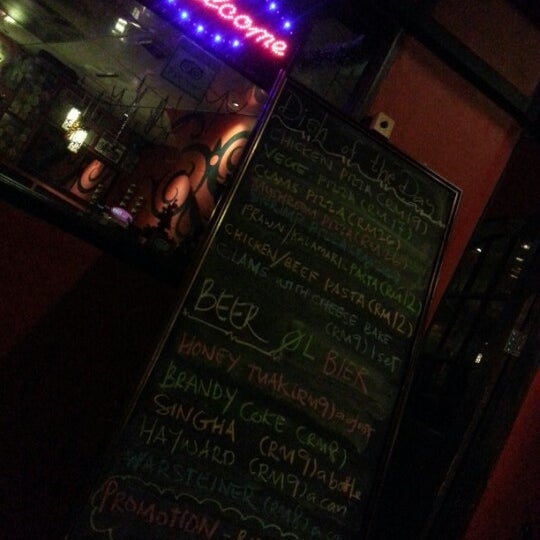 Welcome
Dish of the Day
CHICKEN PIZZA (RM19)
VEGIE PIZZA (RM17)
CLAMS PIZZA (RM20)
MUSHROOM PIZZA
PRAWN/KALAMARI-PASTA (RM12)
CHICKEN/BEEF PASTA (RM12)
CLAMS WITH CHEESE BAKE
(RM9) 1 set
BEER ØL BIER
HONEY TUAK (RM9)
BRANDY COKE (RM8)
SINGHA (RM9) a bottle
HAYWARD (RM9) a can
WARSTEINER (RM8) a can
PROMOTION -